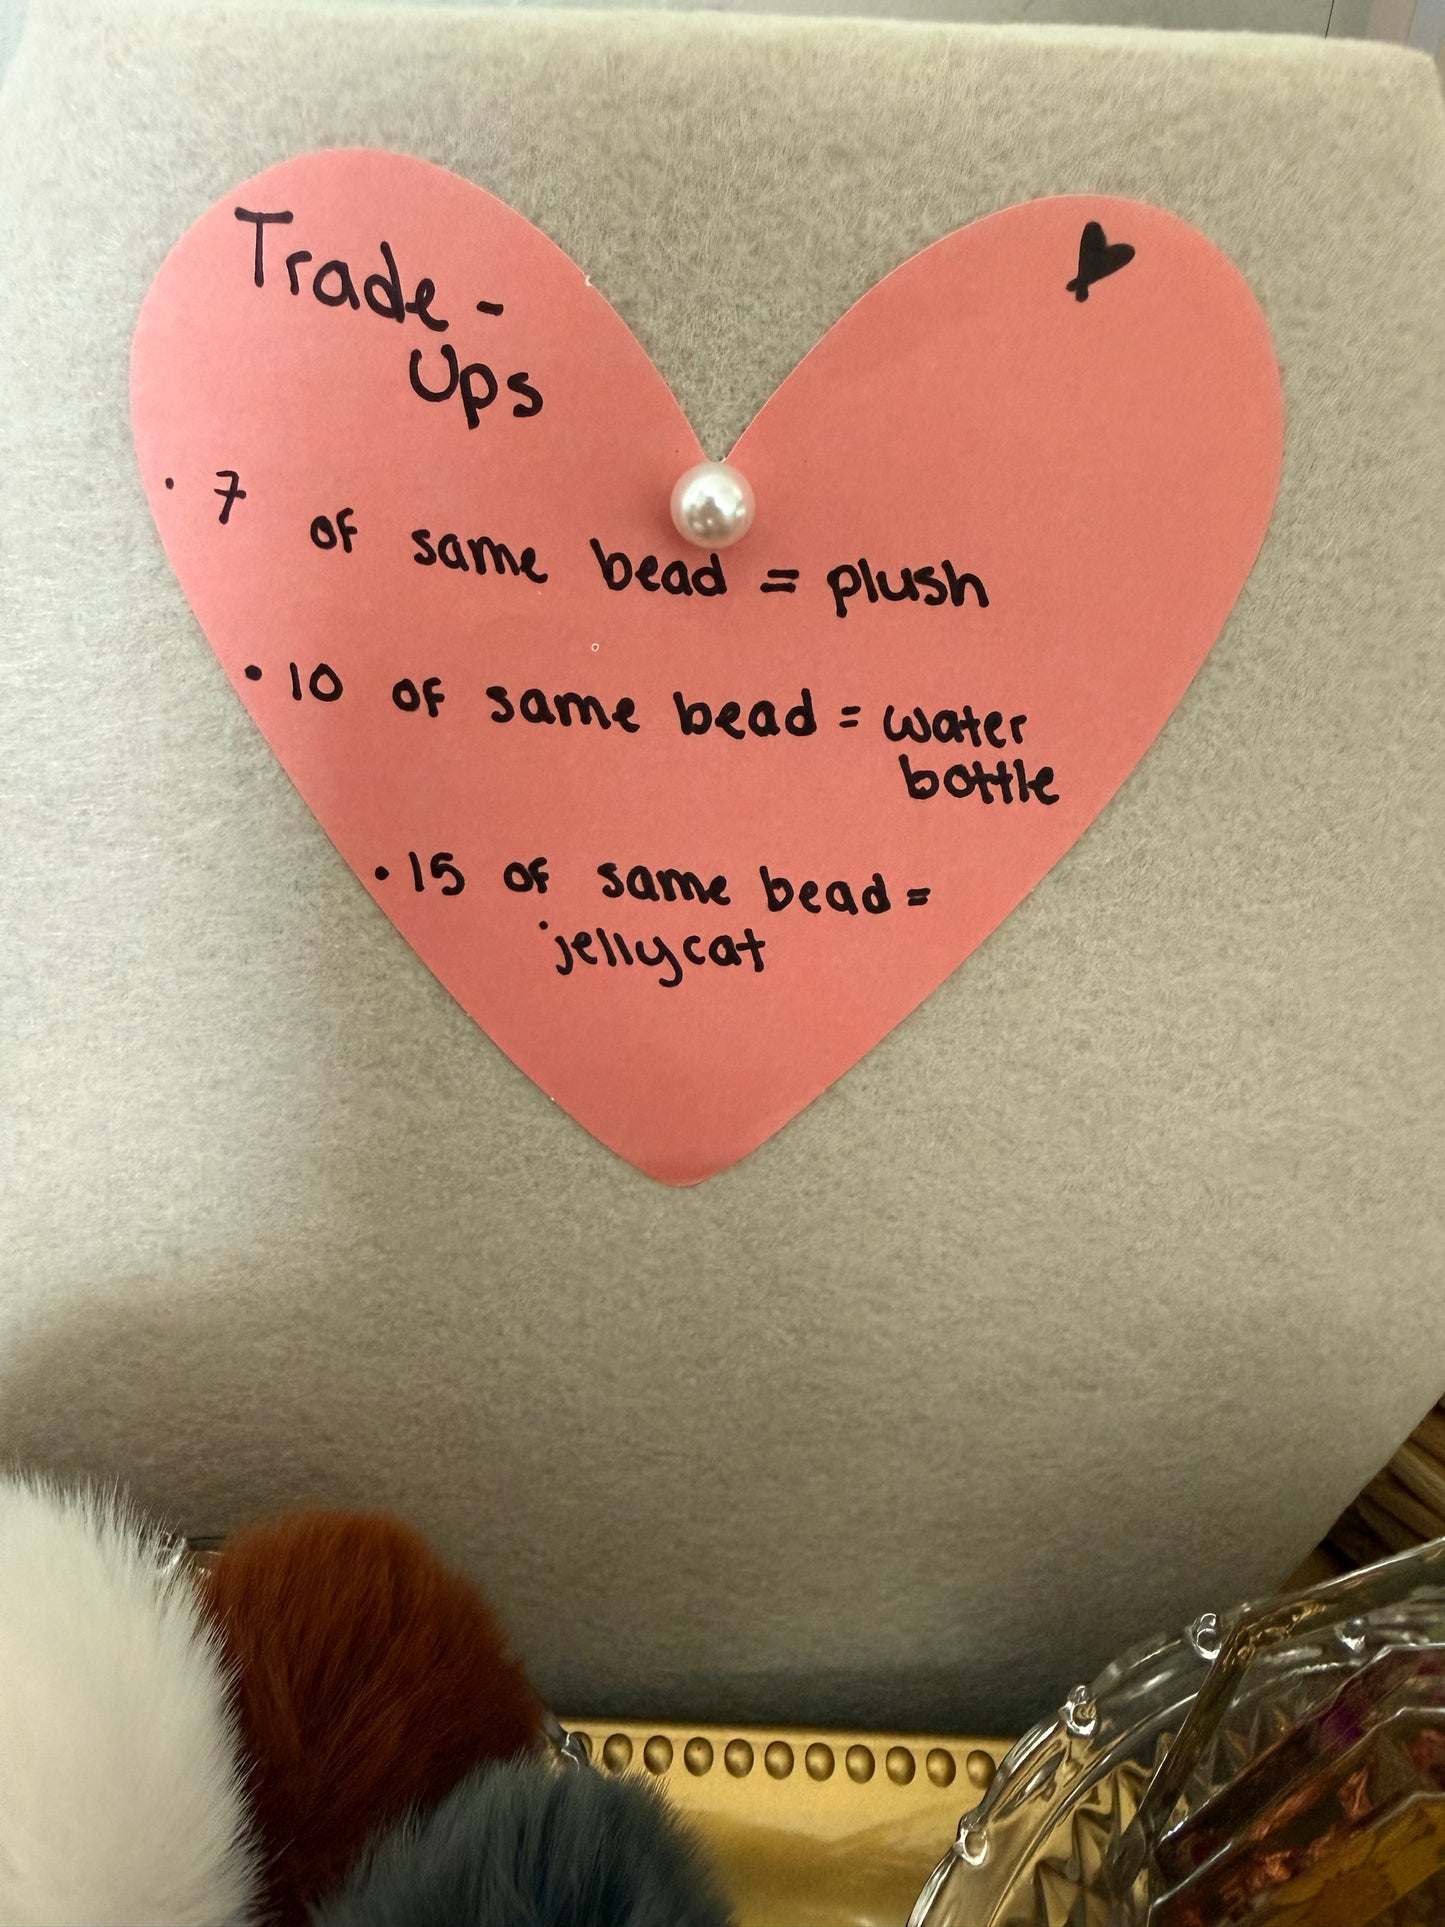 Trade-
Ups
• 7 of same bead = plush
• 10 of same bead = water
bottle
• 15 of same bead =
jellycat